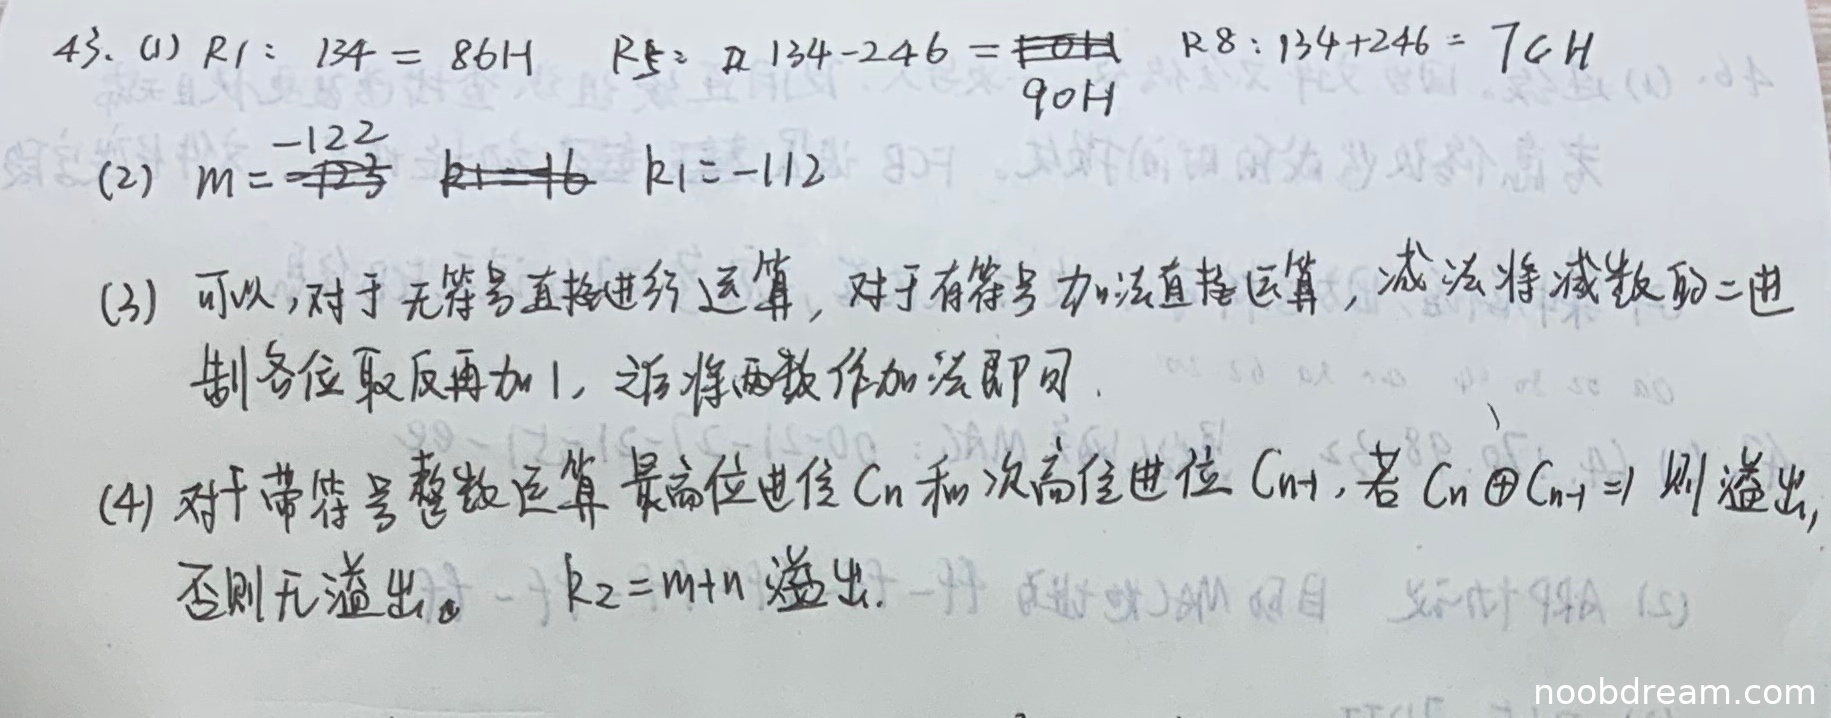 43. (1) R1: 134 = 86H R5: 134-246 = 90H R8: 134+246 = 7CH
(2) m = -122 k1 = -112
(3) 可以,对于无符号直接进行运算,对于有符号加法直接运算,减法将减数的二进
制各位取反再加1,之后将两数作加法即可.
(4) 对于带符号整数运算最高位进位Cn和次高位进位Cn-1,若Cn⊕Cn-1=1则溢出,
否则无溢出。 k2=m+n溢出.
noobdream.com